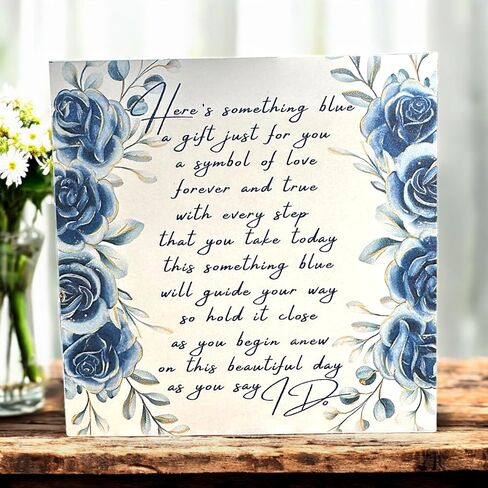 Here's something blue
a gift just for you
a symbol of love
forever and true
with every step
that you take today
this something blue
will guide your way
so hold it close
as you begin anew
on this beautiful day
as you say I Do